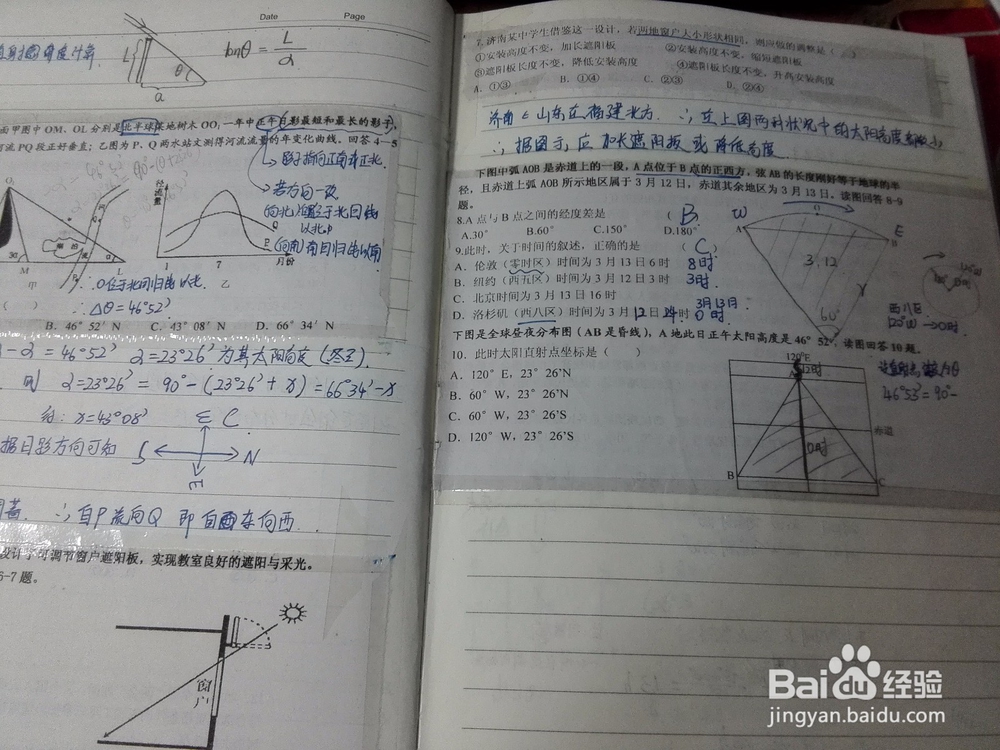 Date Page
角度计算
L
θ
a
tanθ = L/a
面甲图中OM、OL分别是北半球某地树木OO₁一年中正午日影最短和最长的影子,
河流PQ段正好垂直;乙图为P、Q两水站文测得河流流量的年变化曲线。回答4—5
影子指向正南或正北
若方向一致
径流量
Q
P
1 7 月份
30° M L
甲 乙
∴ △θ=46°52′
B. 46°52′N C. 43°08′N D. 66°34′N
-α=46°52′ α=23°26′为其太阳高度(冬至)
则 α=23°26′=90°-(23°26′+x)=66°34′-x
x=43°08′
据日影方向可知
S N
∴自P流向Q 即自东向西.
设计了可调节窗户遮阳板,实现教室良好的遮阳与采光。
6-7题。
窗户
7. 济南某中学生借鉴这一设计,若两地窗户大小形状相同,则应做的调整是( )
①安装高度不变,加长遮阳板 ②安装高度不变,缩短遮阳板
③遮阳板长度不变,降低安装高度 ④遮阳板长度不变,升高安装高度
A. ①③ B. ①④ C. ②③ D. ②④
济南∈山东在福建北方. ∴在上图两种状况中的太阳高度都
∴据图示,应加长遮阳板或降低高度
下图中弧AOB是赤道上的一段,A点位于B点的正西方,弦AB的长度刚好等于地球的半
径,且赤道上弧AOB所示地区属于3月12日,赤道其余地区为3月13日。读图回答8-9
题。
8.A点与B点之间的经度差是 ( B )
A.30° B.60° C.150° D.180°
9.此时,关于时间的叙述,正确的是 ( C )
A.伦敦(零时区)时间为3月13日6时 8时
B.纽约(西五区)时间为3月12日3时 3时.
C.北京时间为3月13日16时
D.洛杉矶(西八区)时间为3月12日24时 3月13日0时
W
E
A
B
3.12
60°
西八区
120°W →0时.
下图是全球昼夜分布图(AB是昏线),A地此日正午太阳高度是46°52′。读图回答10题。
10.此时太阳直射点坐标是( )
A.120°E,23°26′N
B.60°W,23°26′N
C.60°W,23°26′S
D.120°W,23°26′S
120°E
12时
0时
赤道
B
C
46°53′=90-
Baidu经验
jingyan.baidu.com